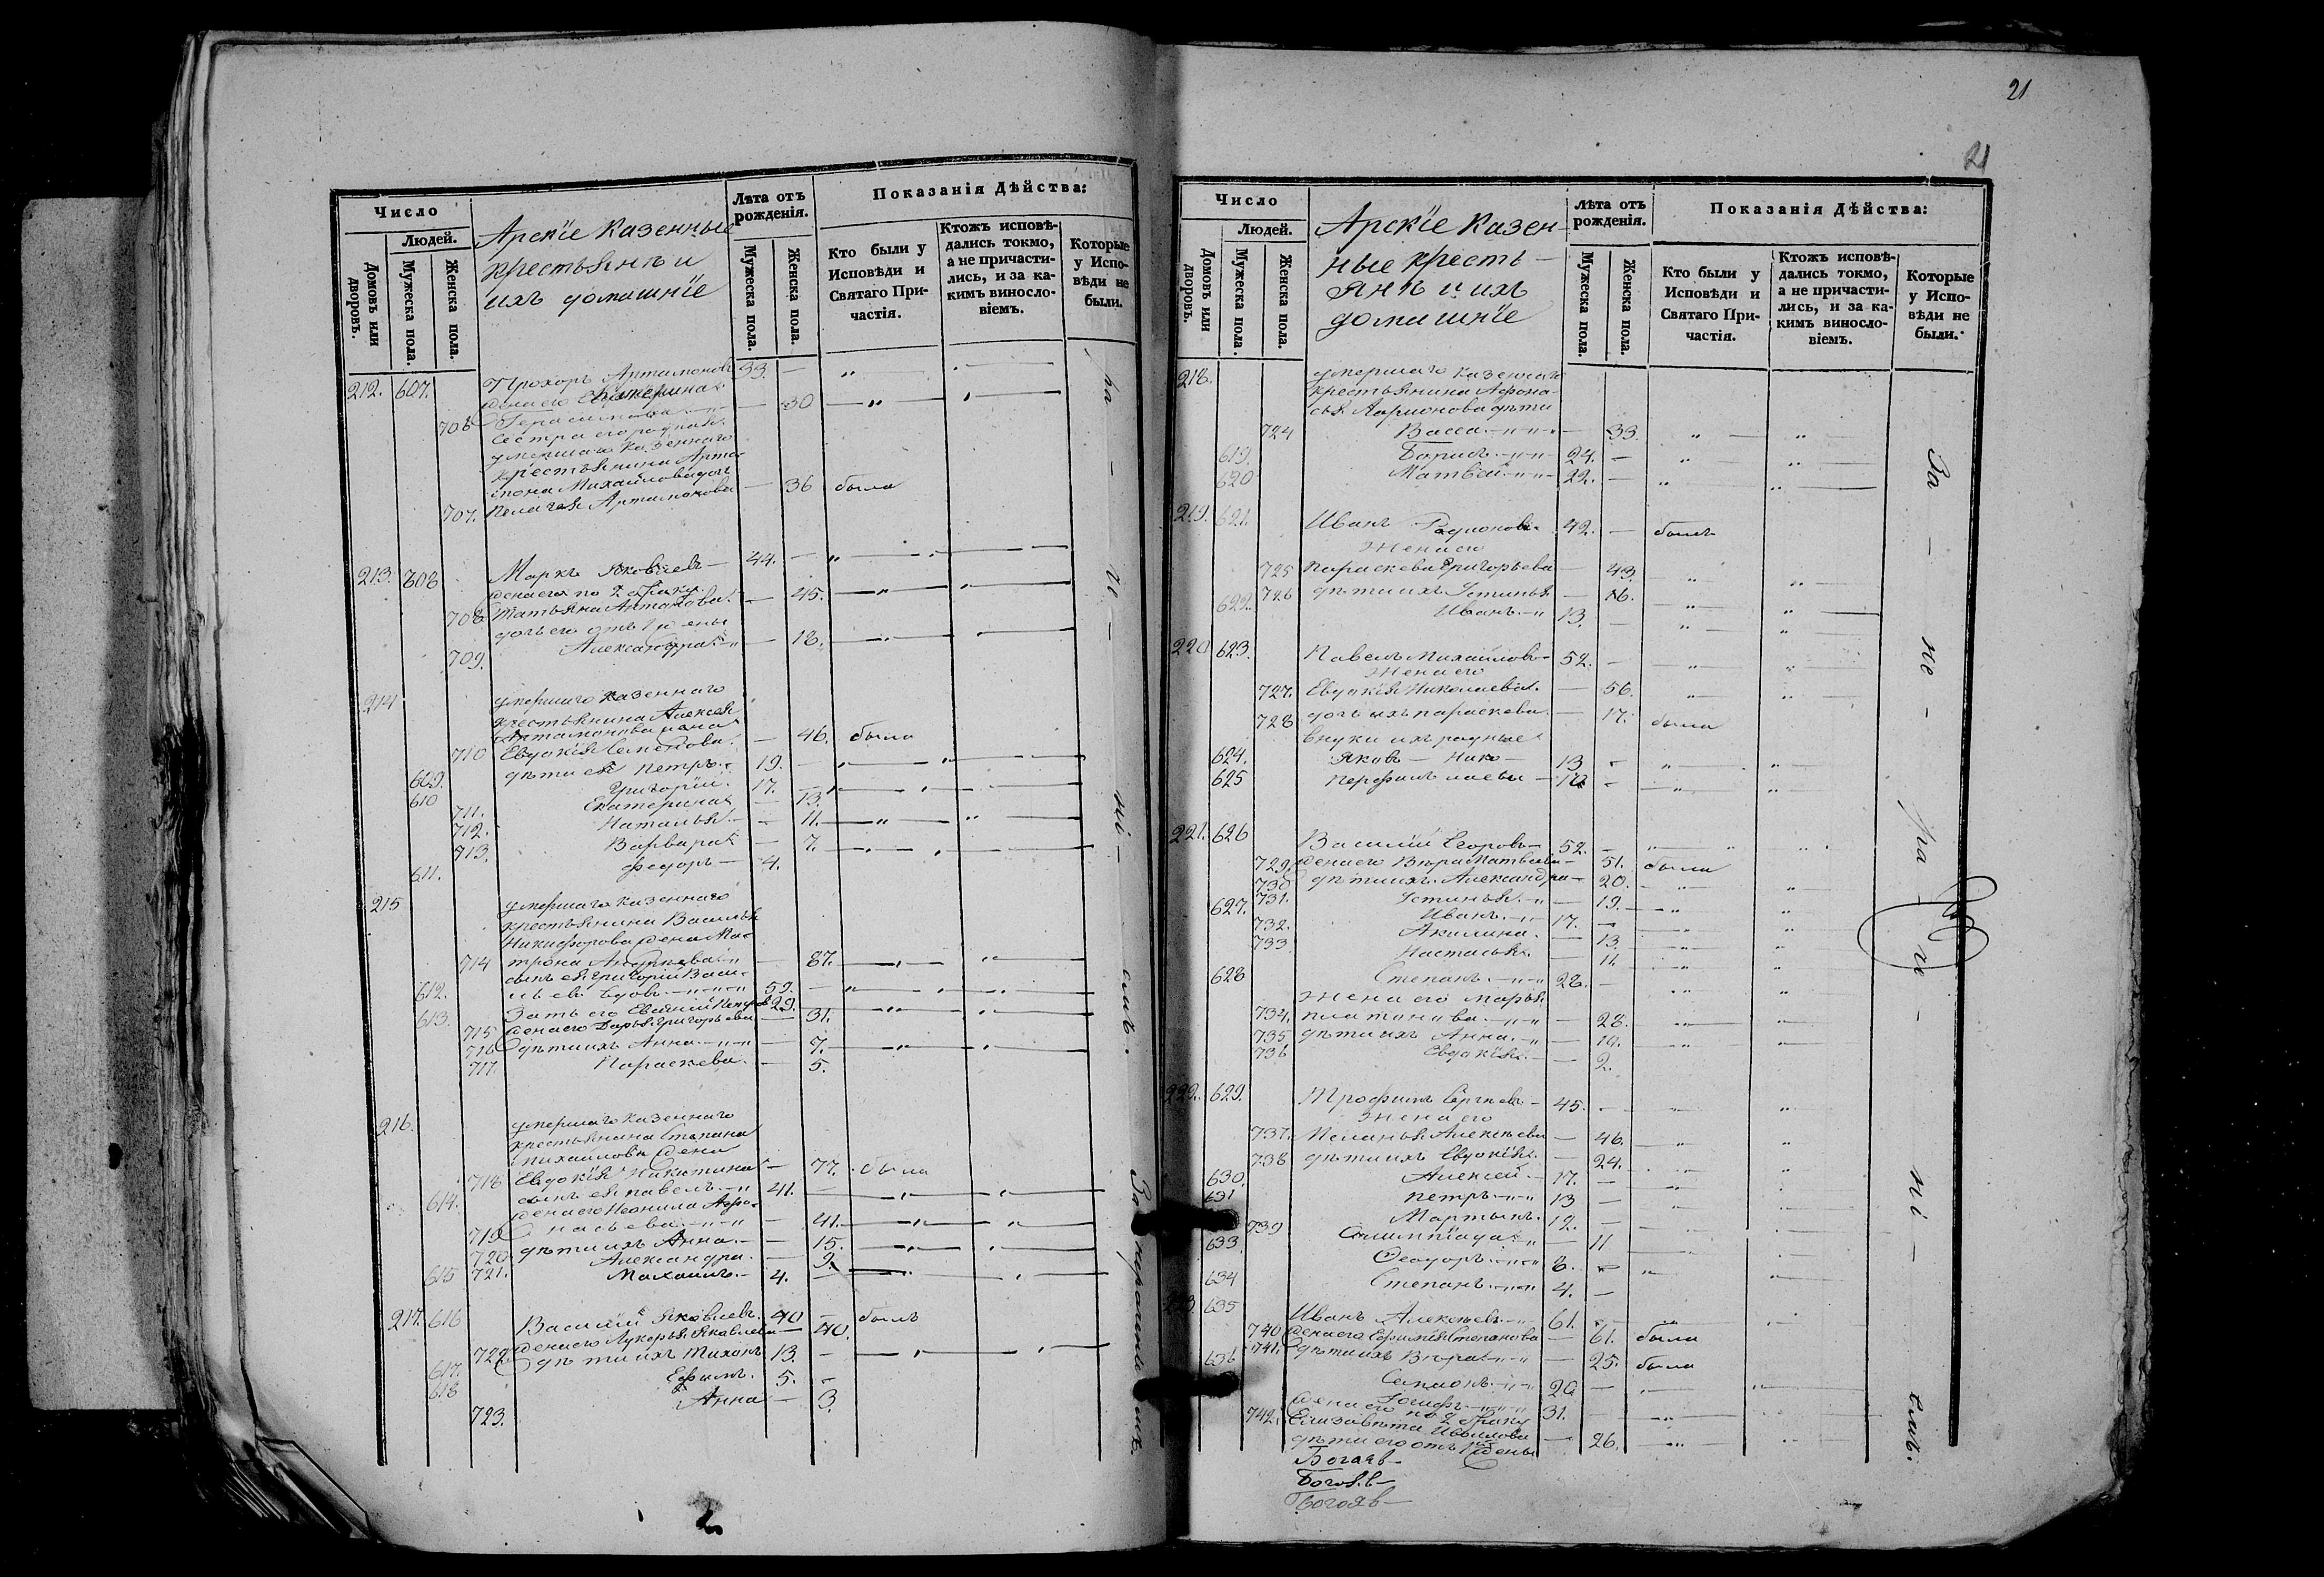 Число
Людей.
Домовъ или дворовъ.
Мужеска пола.
Женска пола.
Арскіе казенные
крестьянъ и
ихъ домашніе
Лѣта отъ рожденія.
Мужеска пола.
Женска пола.
Показанія Дѣйства:
Кто были у Исповѣди и Святаго При-частія.
Ктожъ исповѣ-дались токмо, а не причасти-лись, и за ка-кимъ виносло-віемъ.
Которые у Испо-вѣди не были.
212. 607. Прохоръ Артамоновъ 33.
жена его Екатерина
706 Герасимова 30
Сестра его родная
умершаго казеннаго
крестьянина Арта-
мона Михайлова дочь
707. Пелагея Артамонова 36 была
213. 608 Маркъ Яковлевъ 44.
жена его по 2 браку
708 Татьяна Антонова 45.
дочь его отъ 1й жены
709. Александра 18.
214 умершаго казеннаго
крестьянина Алексея
Артамонова жена
710 Евдокія Семенова 46. была
609. дѣти ея Петръ 19.
610 Григорій 17.
711. Екатерина 13.
712. Наталья 11.
713. Варвара 7.
611. Федоръ 4.
215 умершаго казеннаго
крестьянина Василья
Никифорова жена Мат-
714 трона Андреева 87.
сынъ ея Григорій Васи-
612. льевъ вдовъ 59.
613. Зять его Евѳимій Петровъ 29.
715 жена его Дарья Григорьева 31.
716 дѣти ихъ Анна 7.
717. Параскева 5.
216. умершаго казеннаго
крестьянина Степана
Михайлова жена
718 Евдокія Никитина 77. была
614. сынъ ея Павелъ 41.
жена его Неонила Афо-
719 насьева 41.
720 дѣти ихъ Анна 15.
721. Александра 9.
615 Михаилъ 4.
217. 616 Василій Яковлевъ 40 былъ
722 жена его Лукерья Яковлева 40.
617. дѣти ихъ Тихонъ 13.
618 Ефимъ 5.
723. Анна 3.
ра - ні - емъ.
За нераденіемъ.
21
21
Число
Людей.
Домовъ или дворовъ.
Мужеска пола.
Женска пола.
Арскіе казен-
ные кресть-
янъ и ихъ
домашніе
Лѣта отъ рожденія.
Мужеска пола.
Женска пола.
Показанія Дѣйства:
Кто были у Исповѣди и Святаго При-частія.
Ктожъ исповѣ-дались токмо, а не причасти-лись, и за ка-кимъ виносло-віемъ.
Которые у Испо-вѣди не были.
218. умершаго казеннаго
крестьянина Афона-
сья Ларионова дѣти
724 Васса 33.
619. Борисъ 24.
620 Матвѣй 22.
219. 621. Иванъ Родионовъ 42. былъ
жена его
725 Параскева Григорьева 43.
726 дѣти ихъ Устинья 16.
622. Иванъ 13.
220 623. Павелъ Михайловъ 52.
жена его
727. Евдокія Николаева 56.
728 дочь ихъ Параскева 17. была
внуки ихъ родные
624. Яковъ Нико- 13
625 Перфилъ лаевы 10
221. 626 Василій Егоровъ 52.
729. жена его Вѣра Матвеева 51. была
730 дѣти ихъ Александра 20.
731. Устинья 19.
627. Иванъ 17.
732. Акилина 13.
733 Настасья 11.
628 Степанъ 28.
жена его Марья
734. Платонова 28.
735 дѣти ихъ Анна 10.
736 Евдокія 2.
222. 629. Трофимъ Сергеевъ 45.
жена его
737. Меланья Алексеева 46.
738 дѣти ихъ Евдокія 24.
630. Алексей 17.
631 Петръ 13
Мартынъ 12.
739 Олимпіада 11
633 Ѳеодоръ 8.
634 Степанъ 4.
223. 635 Иванъ Алексеевъ 61.
740 жена его Ефимія Степанова 61. была
741. дѣти ихъ Вѣра 25. была
636 Симионъ 20
Іосифъ 31.
жена его по 2 браку
742. Елизавета Ивановна 26.
дѣти его отъ 1ой жены
Богояв-
Богояв-
Богояв-
За - не - ра - ні - емъ.